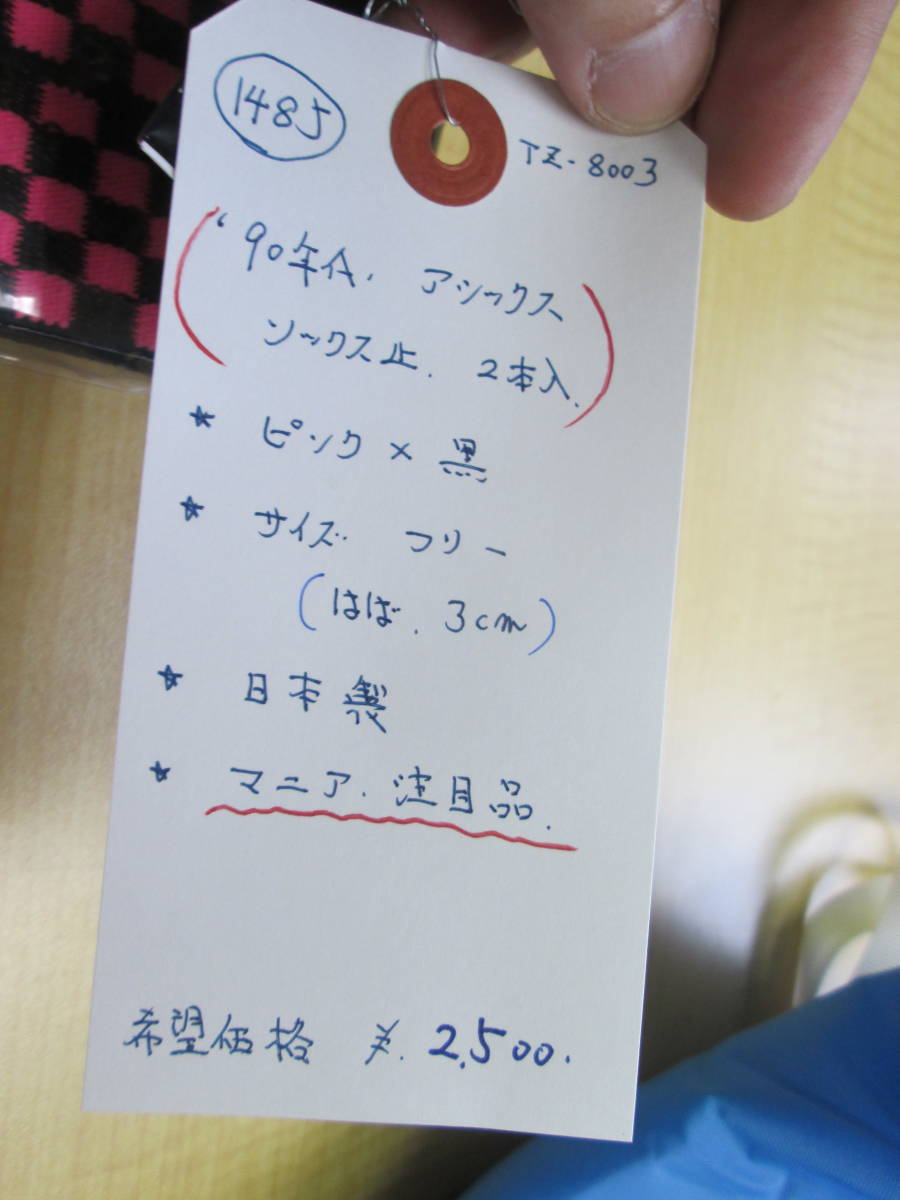 1485
TZ-8003
'90年代. アシックス
ソックス止. 2本入.
★ ピンク×黒
★ サイズ フリー
(はば. 3cm)
★ 日本製
★ マニア.注目品.
希望価格 ¥.2,500.